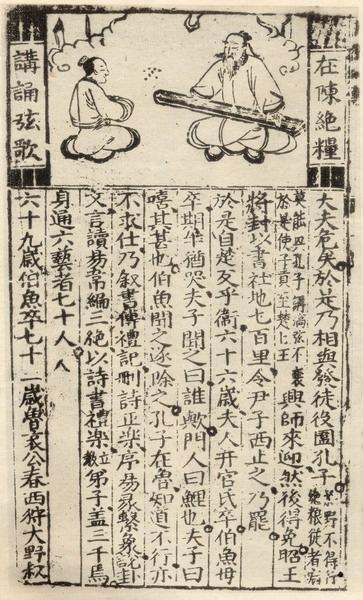 在陳絕糧
講誦弦歌
大夫危矣於是乃相與發徒役圍孔子於野不得行絕粮從者病
莫能興孔子講誦弦不衰於是使子貢至楚王興師來迎然後得免昭王
將封以書社地七百里令尹子西止之乃罷
於是自楚反乎衛六十六歲夫人开官氏卒伯魚母
卒期年猶哭夫子聞之曰誰歟門人曰鯉也夫子曰
嘻其甚也伯魚聞之遂除之孔子在魯知道不行亦
不求仕乃叙書傳禮記刪詩正樂序易彖繫象說卦
文言讀易韋編三絕以詩書禮樂教弟子蓋三千焉
身通六藝者七十人
六十九歲伯魚卒七十一歲魯哀公春西狩大野叔